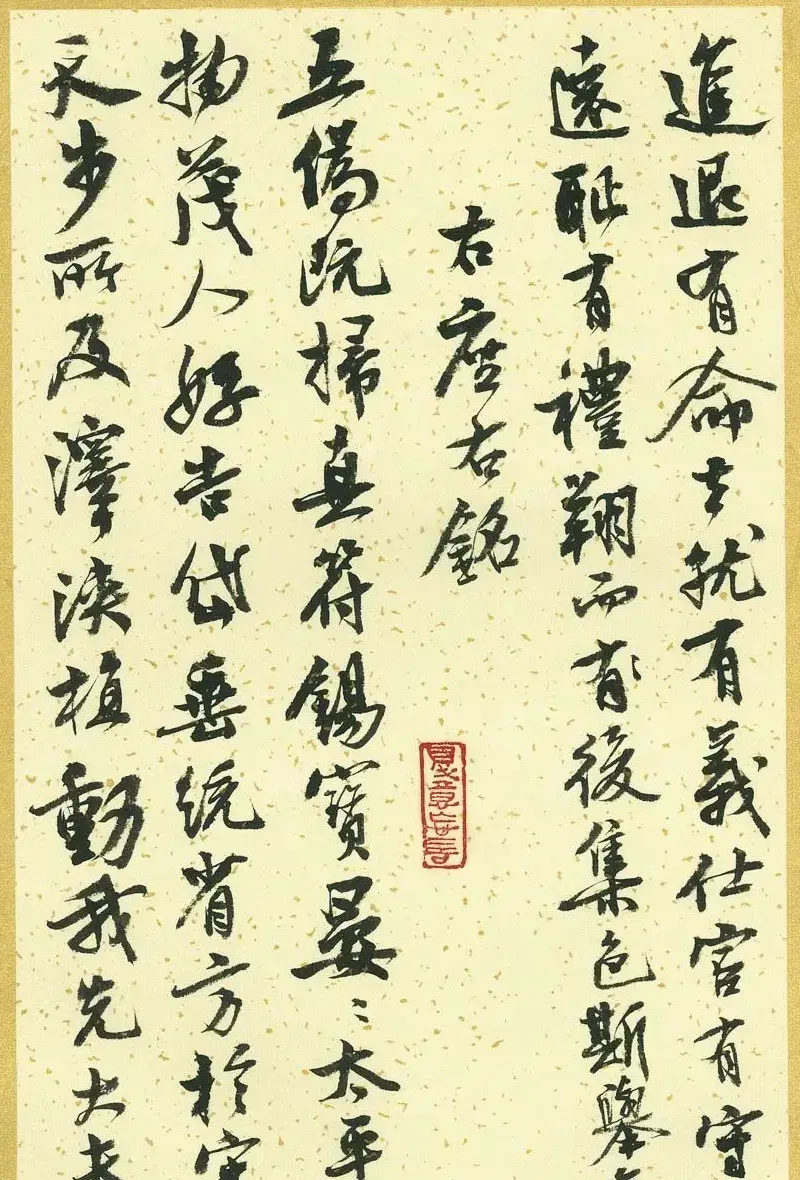 進退有命去就有義仕宦有守
遠耻有禮翔而有後集色斯舉
右座右銘
五僞既掃真符錫寶晏〻太平
物茂人好告岱垂統省方於宋
天步所及澤浹植動我先大夫